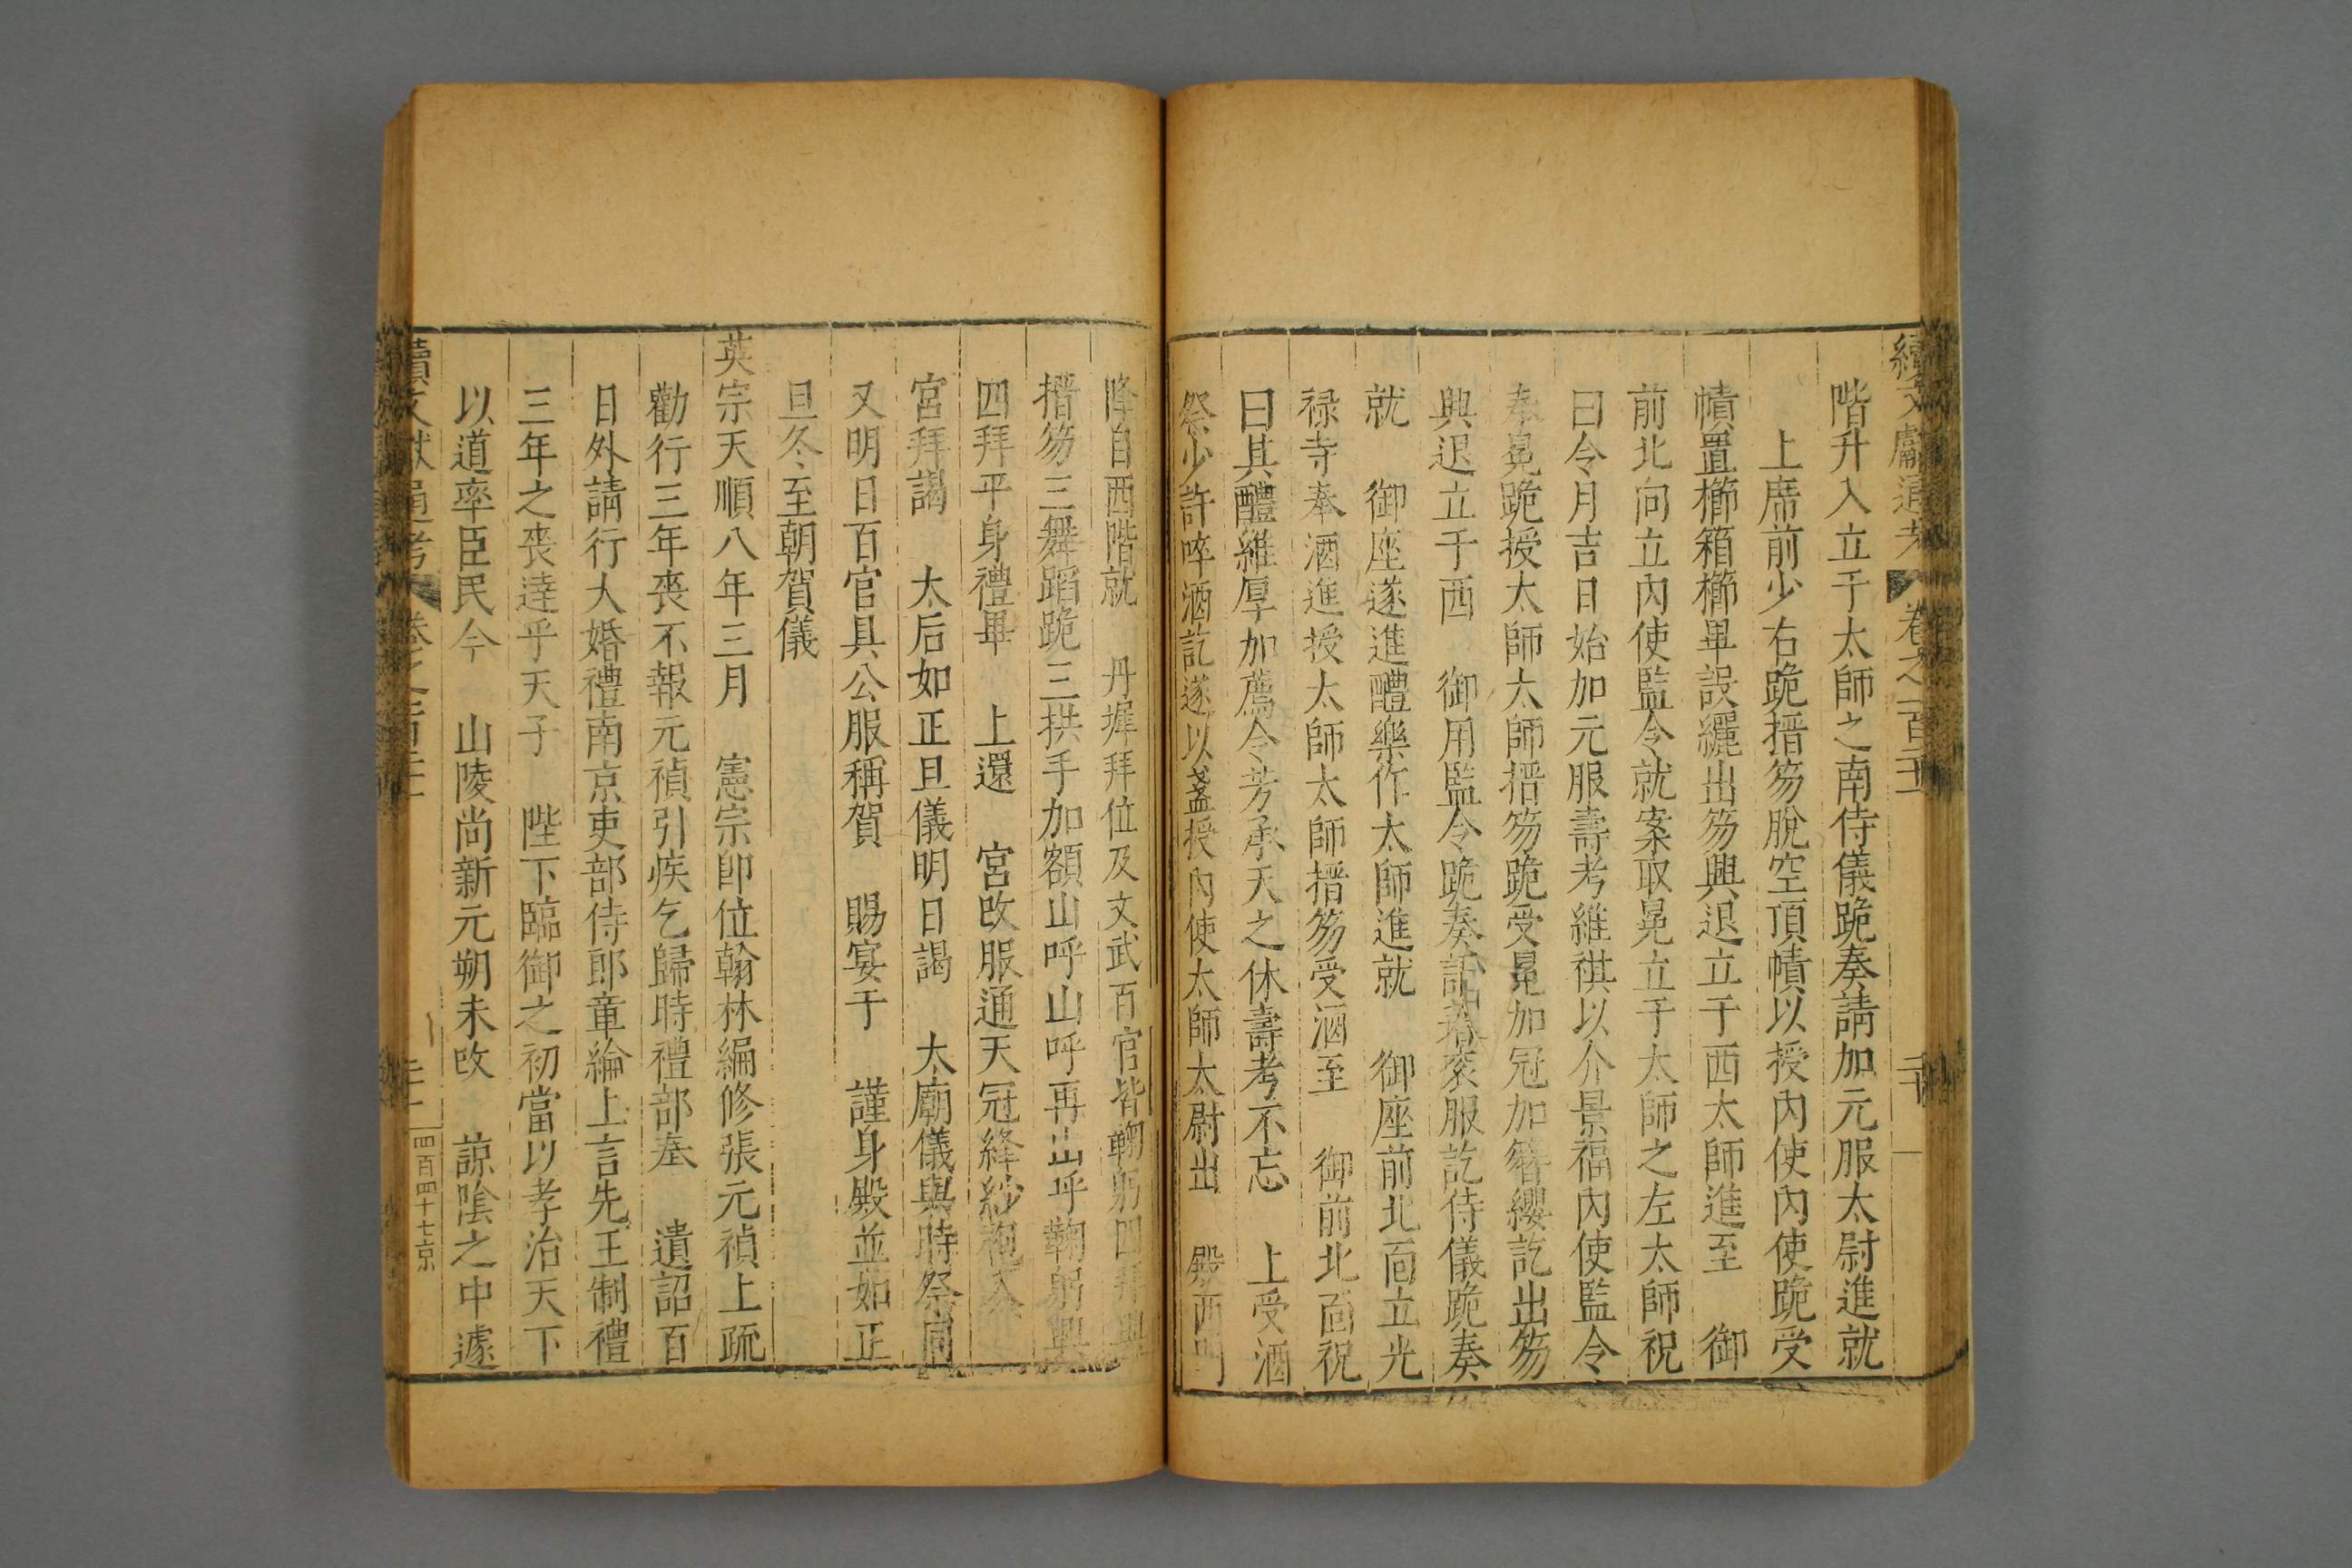 續文獻通考 卷之一百
階升入立于太師之南侍儀跪奏請加元服太尉進就
上席前少右跪搢笏脫空頂幘以授內使內使跪受
幘置櫛箱櫛畢設纚出笏興退立于西太師進至 御
前北向立內使監令就案取冕立于太師之左太師祝
曰令月吉日始加元服壽考維祺以介景福內使監令
奉冕跪授太師太師搢笏跪受冕加冠加簪纓訖出笏
興退立于西 御用監令跪奏請著衮服訖侍儀跪奏
就 御座遂進醴樂作太師進就 御座前北面立光
禄寺奉酒進授太師太師搢笏受酒至 御前北面祝
曰其醴維厚加薦令芳承天之休壽考不忘 上受酒
祭少許啐酒訖遂以盞授內使太師太尉出 殿西門
降自西階就 丹墀拜位及文武百官皆鞠躬四拜興
搢笏三舞蹈跪三拱手加額山呼山呼再出呼鞠躬興
四拜平身禮畢 上還 宮改服通天冠絳紗袍入
宮拜謁 太后如正旦儀明日謁 太廟儀與時祭同
又明日百官具公服稱賀 賜宴于 謹身殿並如正
旦冬至朝賀儀
英宗天順八年三月 憲宗卽位翰林編修張元禎上疏
勸行三年喪不報元禎引疾乞歸時禮部奉 遺詔百
日外請行大婚禮南京吏部侍郎章綸上言先王制禮
三年之喪達乎天子 陛下臨御之初當以孝治天下
以道率臣民今 山陵尚新元朔未改 諒陰之中遽
續文獻通考 卷之一百 四百四十七京